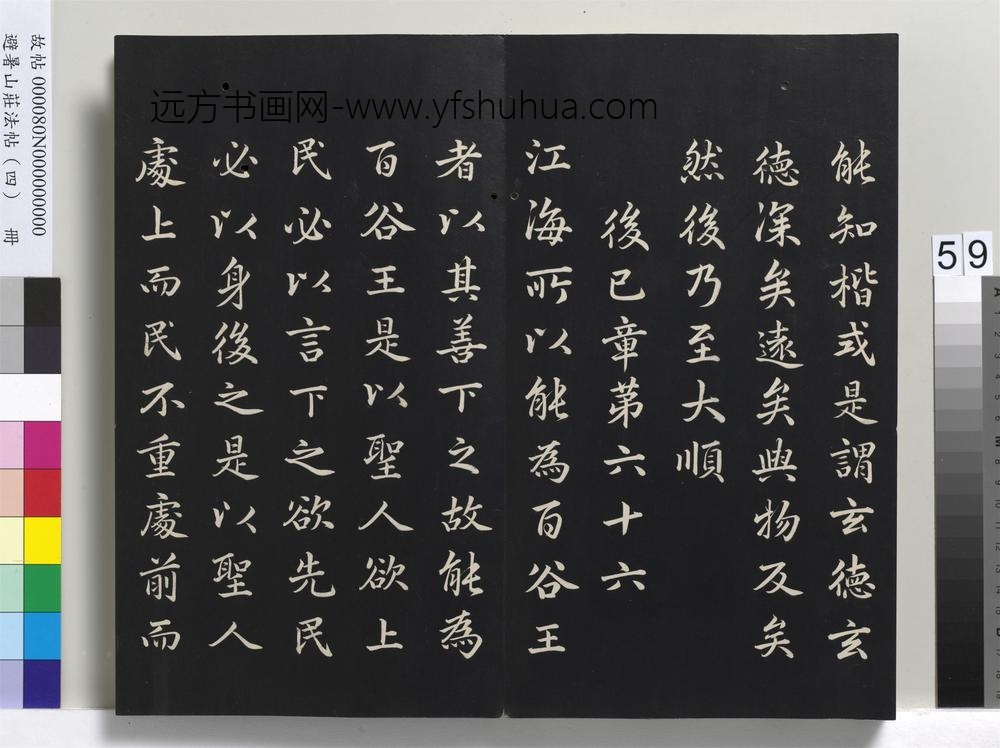 能知楷式是謂玄德玄
德深矣遠矣與物反矣
然後乃至大順
後已章第六十六
江海所以能為百谷王
者以其善下之故能為
百谷王是以聖人欲上
民必以言下之欲先民
必以身後之是以聖人
處上而民不重處前而
远方书画网-www.yfshuhua.com
故帖 000080N000000000
避暑山莊法帖（四） 冊
59